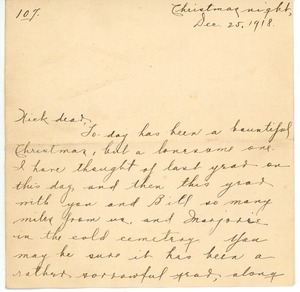 107.
Christmas night,
Dec. 25, 1918.
Kick dead,
To-day has been a bountiful
Christmas, but a lonesome one.
I have thought of last year on
this day and then this year
with you and Bill so many
miles from us, and Marjorie
in the cold cemetery. You
may be sure it has been a
rather sorrowful year, along